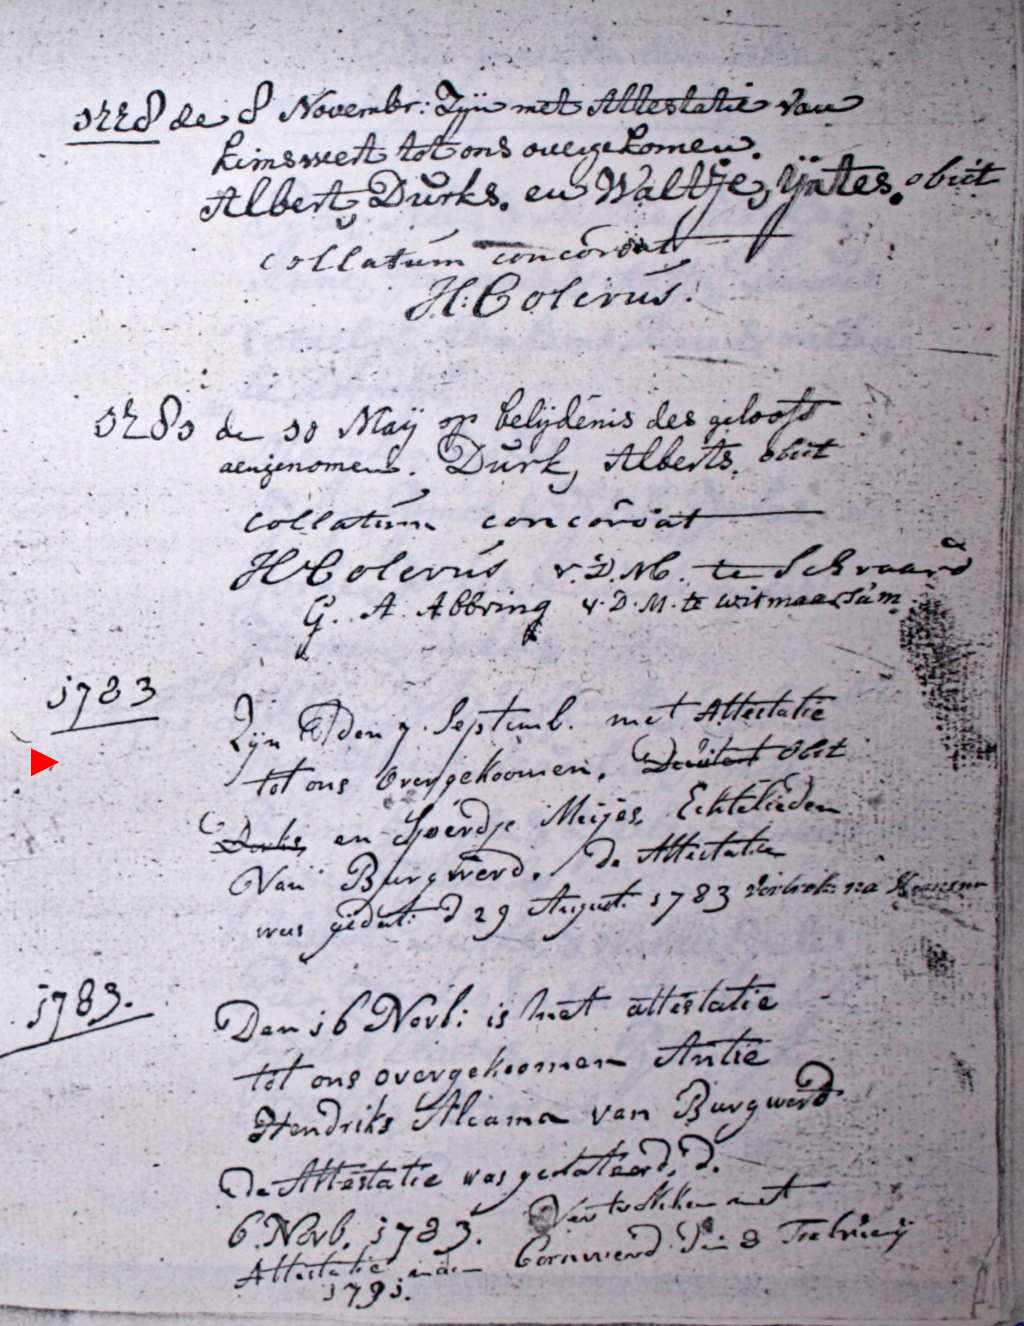 1778 de 8 Novembr: Zijn met Attestatie van
kimswert tot ons overgekomen.
Albert Durks. en Waltje Ijntes. obiit
collatum concordat
H: Colerus.
1781 de 10 Maij op belijdenis des geloofs
aengenomen. Durk Alberts. obiit
collatum concordat
H Colerus v. D. M. te Schraard
G. A. Abbring v. D. M. te Witmaarsum
1783
Zijn den 7. Septemb. met Attestatie
tot ons overgekoomen. obiit
Durks en Sjoerdje Meijes Echtelieden
Van Burgwerd. de Attestatie
was gedat: d 29 August. 1783 vertrok na
1783.
Den 16 Novb: is met attestatie
tot ons overgekoomen Antie
Hendriks Alcama van Burgwerd
De Attestatie was gedateerd, d.
6. Novb. 1783. Vertrokken met
Attestatie Cornwerd Den 8
1791.